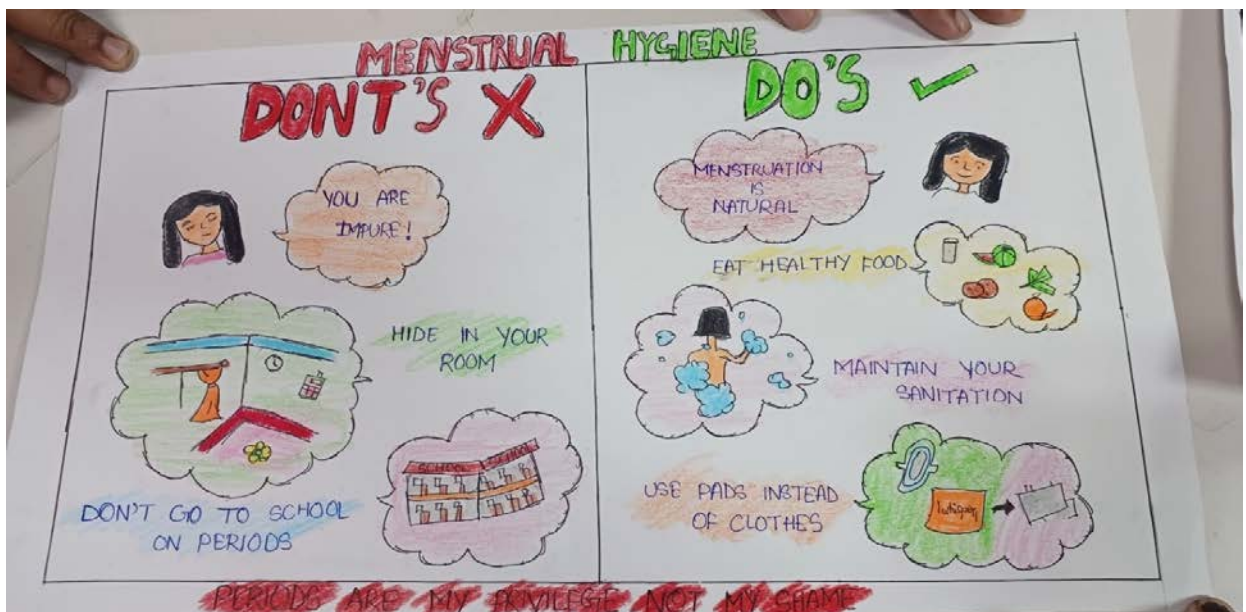 MENSTRUAL HYGIENE
DONT'S X
YOU ARE
IMPURE!
HIDE IN YOUR
ROOM
SCHOOL SCHOOL
DON'T GO TO SCHOOL
ON PERIODS
DO'S ✓
MENSTRUATION
IS
NATURAL
EAT HEALTHY FOOD
MAINTAIN YOUR
SANITATION
USE PADS INSTEAD
OF CLOTHES
Whisper
PERIODS ARE MY PRIVILEGE NOT MY SHAME